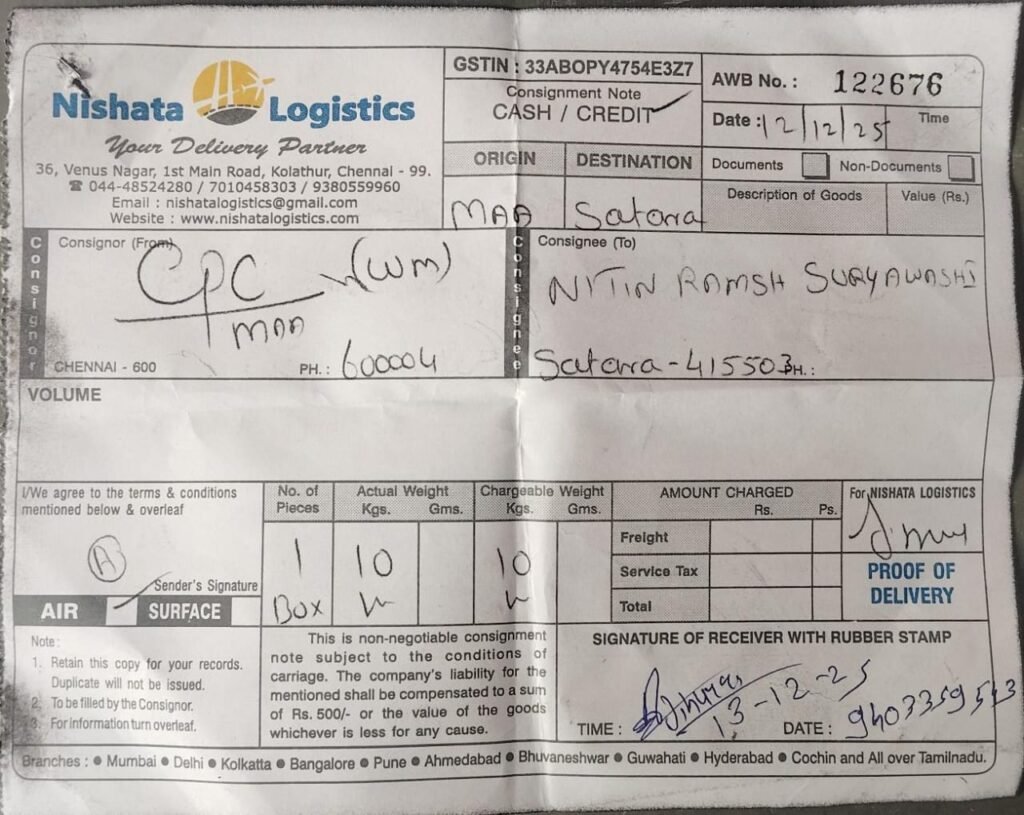 Nishata Logistics
Your Delivery Partner
36, Venus Nagar, 1st Main Road, Kolathur, Chennai - 99.
☎ 044-48524280 / 7010458303 / 9380559960
Email : nishatalogistics@gmail.com
Website : www.nishatalogistics.com
GSTIN : 33ABOPY4754E3Z7
Consignment Note
CASH / CREDIT ✓
AWB No. : 122676
Date : 12/12/25 Time
ORIGIN DESTINATION
MAA Satara
Documents Non-Documents
Description of Goods Value (Rs.)
Consignor
Consignor (From)
CPC (WM)
MAA
CHENNAI - 600 PH. : 600004
Consignee
Consignee (To)
NITIN RAMSH SURYAWASHI
Satara - 415503 PH. :
VOLUME
I/We agree to the terms & conditions
mentioned below & overleaf
A
Sender's Signature
AIR ✓ SURFACE
No. of Pieces
1
Box
Actual Weight
Kgs. Gms.
10
Chargeable Weight
Kgs. Gms.
10
AMOUNT CHARGED
Rs. Ps.
Freight
Service Tax
Total
For NISHATA LOGISTICS
PROOF OF
DELIVERY
Note :
1. Retain this copy for your records.
Duplicate will not be issued.
2. To be filled by the Consignor.
3. For information turn overleaf.
This is non-negotiable consignment
note subject to the conditions of
carriage. The company's liability for the
mentioned shall be compensated to a sum
of Rs. 500/- or the value of the goods
whichever is less for any cause.
SIGNATURE OF RECEIVER WITH RUBBER STAMP
13-12-25
TIME : DATE : 9403359513
Branches : ● Mumbai ● Delhi ● Kolkatta ● Bangalore ● Pune ● Ahmedabad ● Bhuvaneshwar ● Guwahati ● Hyderabad ● Cochin and All over Tamilnadu.